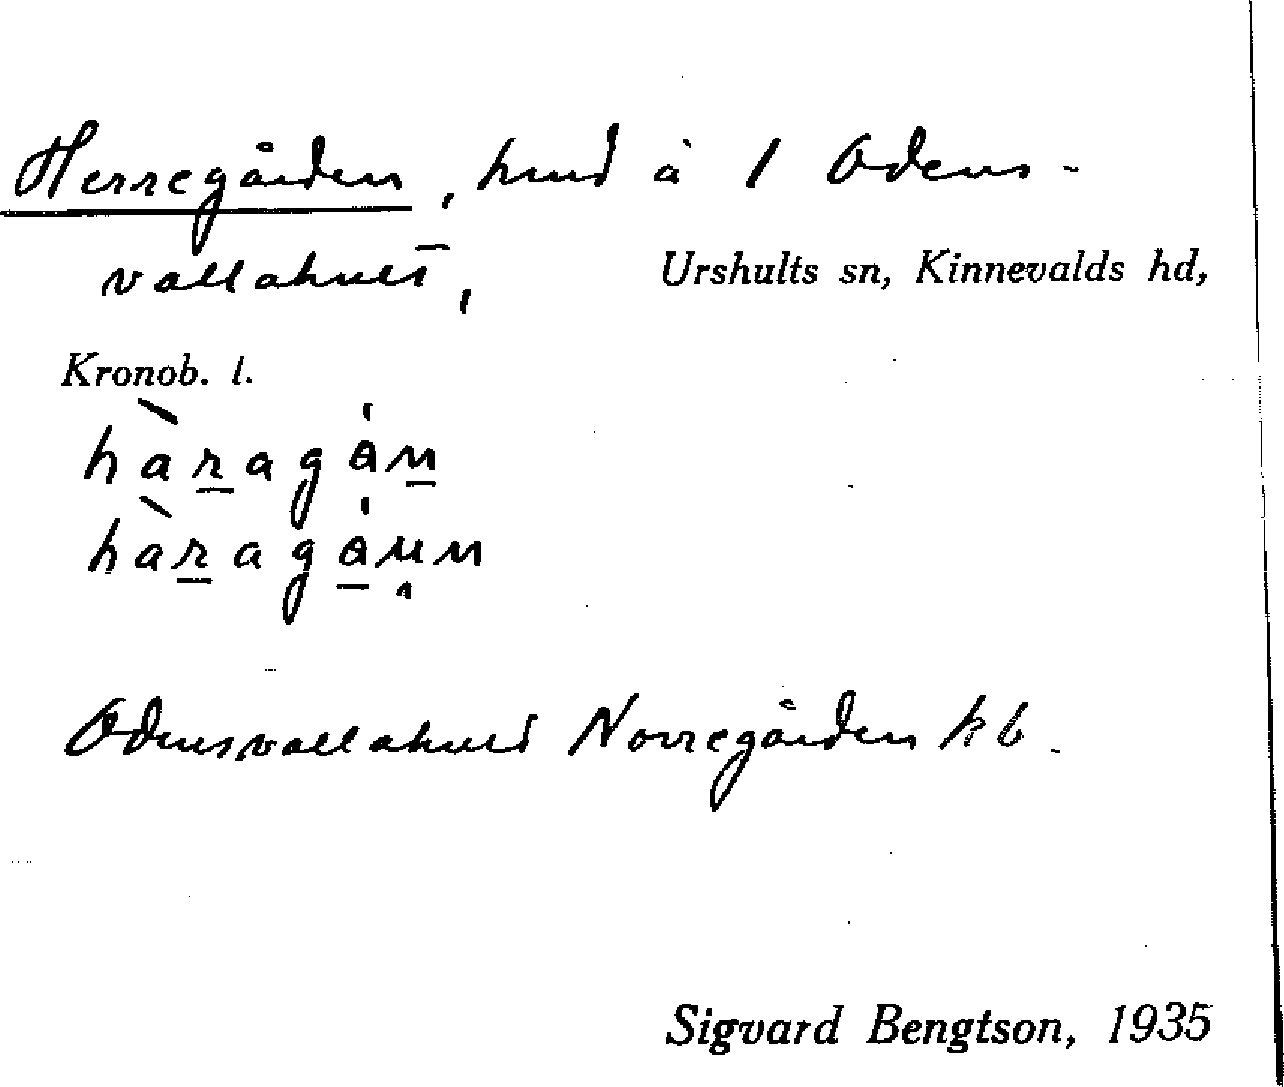 Herregården, hmd å 1 Odens-
vallahult, Urshults sn, Kinnevalds hd,
Kronob. l.
hàragån
hàragåun
Odensvallahult Norregården kb.
Sigvard Bengtson, 1935